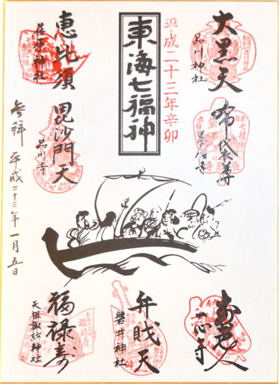 東海七福神
平成二十三年辛卯
大黒天
品川神社
布袋尊
養願寺
寿老人
一心寺
恵比須
荏原神社
毘沙門天
品川寺
弁財天
磐井神社
福禄寿
天祖諏訪神社
参拝 平成二十三年一月五日